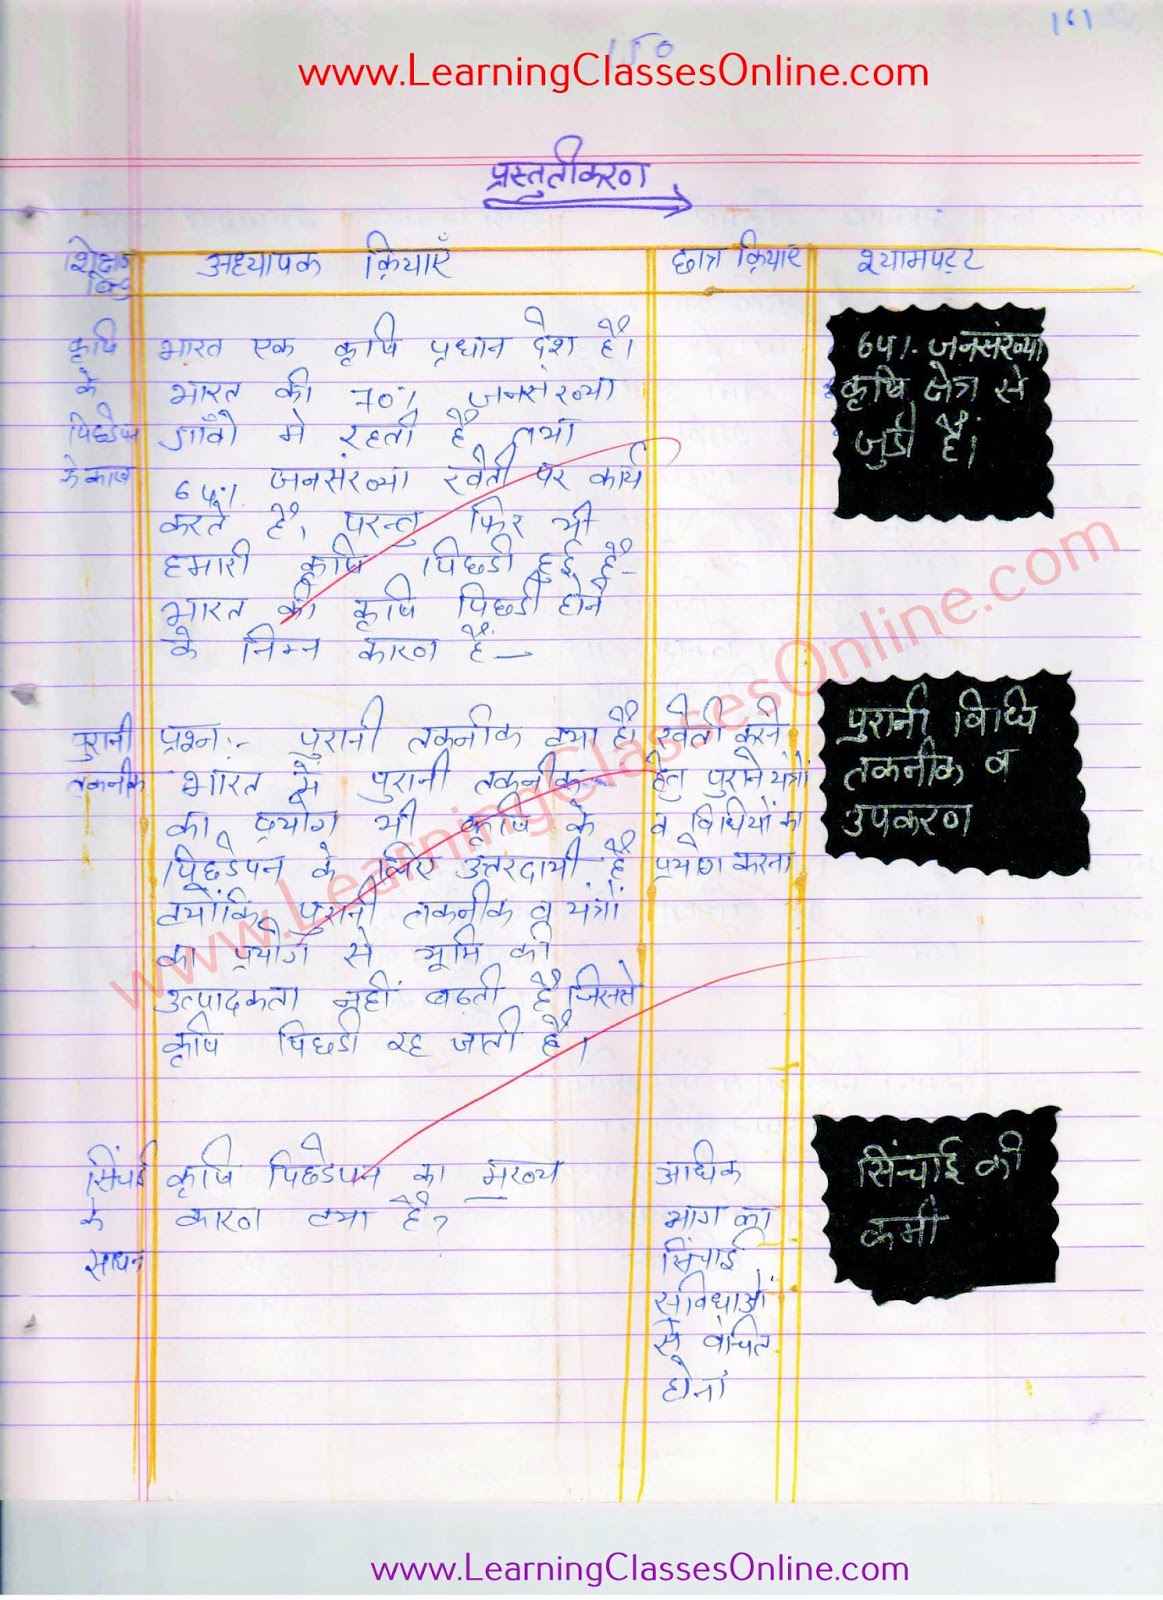 161
150
www.LearningClassesOnline.com
प्रस्तुतीकरण
शिक्षण बिन्दु
अध्यापक क्रियाएँ
छात्र क्रियाएं
श्यामपट्ट
कृषि
के
पिछडेपन
के कारण
भारत एक कृषि प्रधान देश है।
भारत की 70% जनसंख्या
गाँवो मे रहती है तथा
64% जनसंख्या खेती पर कार्य
करते है, परन्तु फिर भी
हमारी कृषि पिछडी हुई है-
भारत की कृषि पिछडी होने
के निम्न कारण है-
64% जनसंख्या
कृषि क्षेत्र से
जुडी है।
पुरानी
तकनीक
प्रश्न:- पुरानी तकनीक क्या है।
भारत में पुरानी तकनीक
का प्रयोग भी कृषि के
पिछडेपन के लिए उत्तरदायी है
क्योंकि पुरानी तकनीक व यंत्रों
का प्रयोग से भूमि की
उत्पादकता नहीं बढ़ती है जिससे
कृषि पिछडी रह जाती है।
खेती करने
हेतु पुराने यंत्रों
व विधियों का
प्रयोग करना
पुरानी विधि
तकनीक व
उपकरण
www.LearningClassesOnline.com
सिंचाई
के
साधन
कृषि पिछडेपन का मुख्य
कारण क्या है?
अधिक
भाग का
सिंचाई
सुविधाओं
से वंचित
होना
सिंचाई की
कमी
www.LearningClassesOnline.com